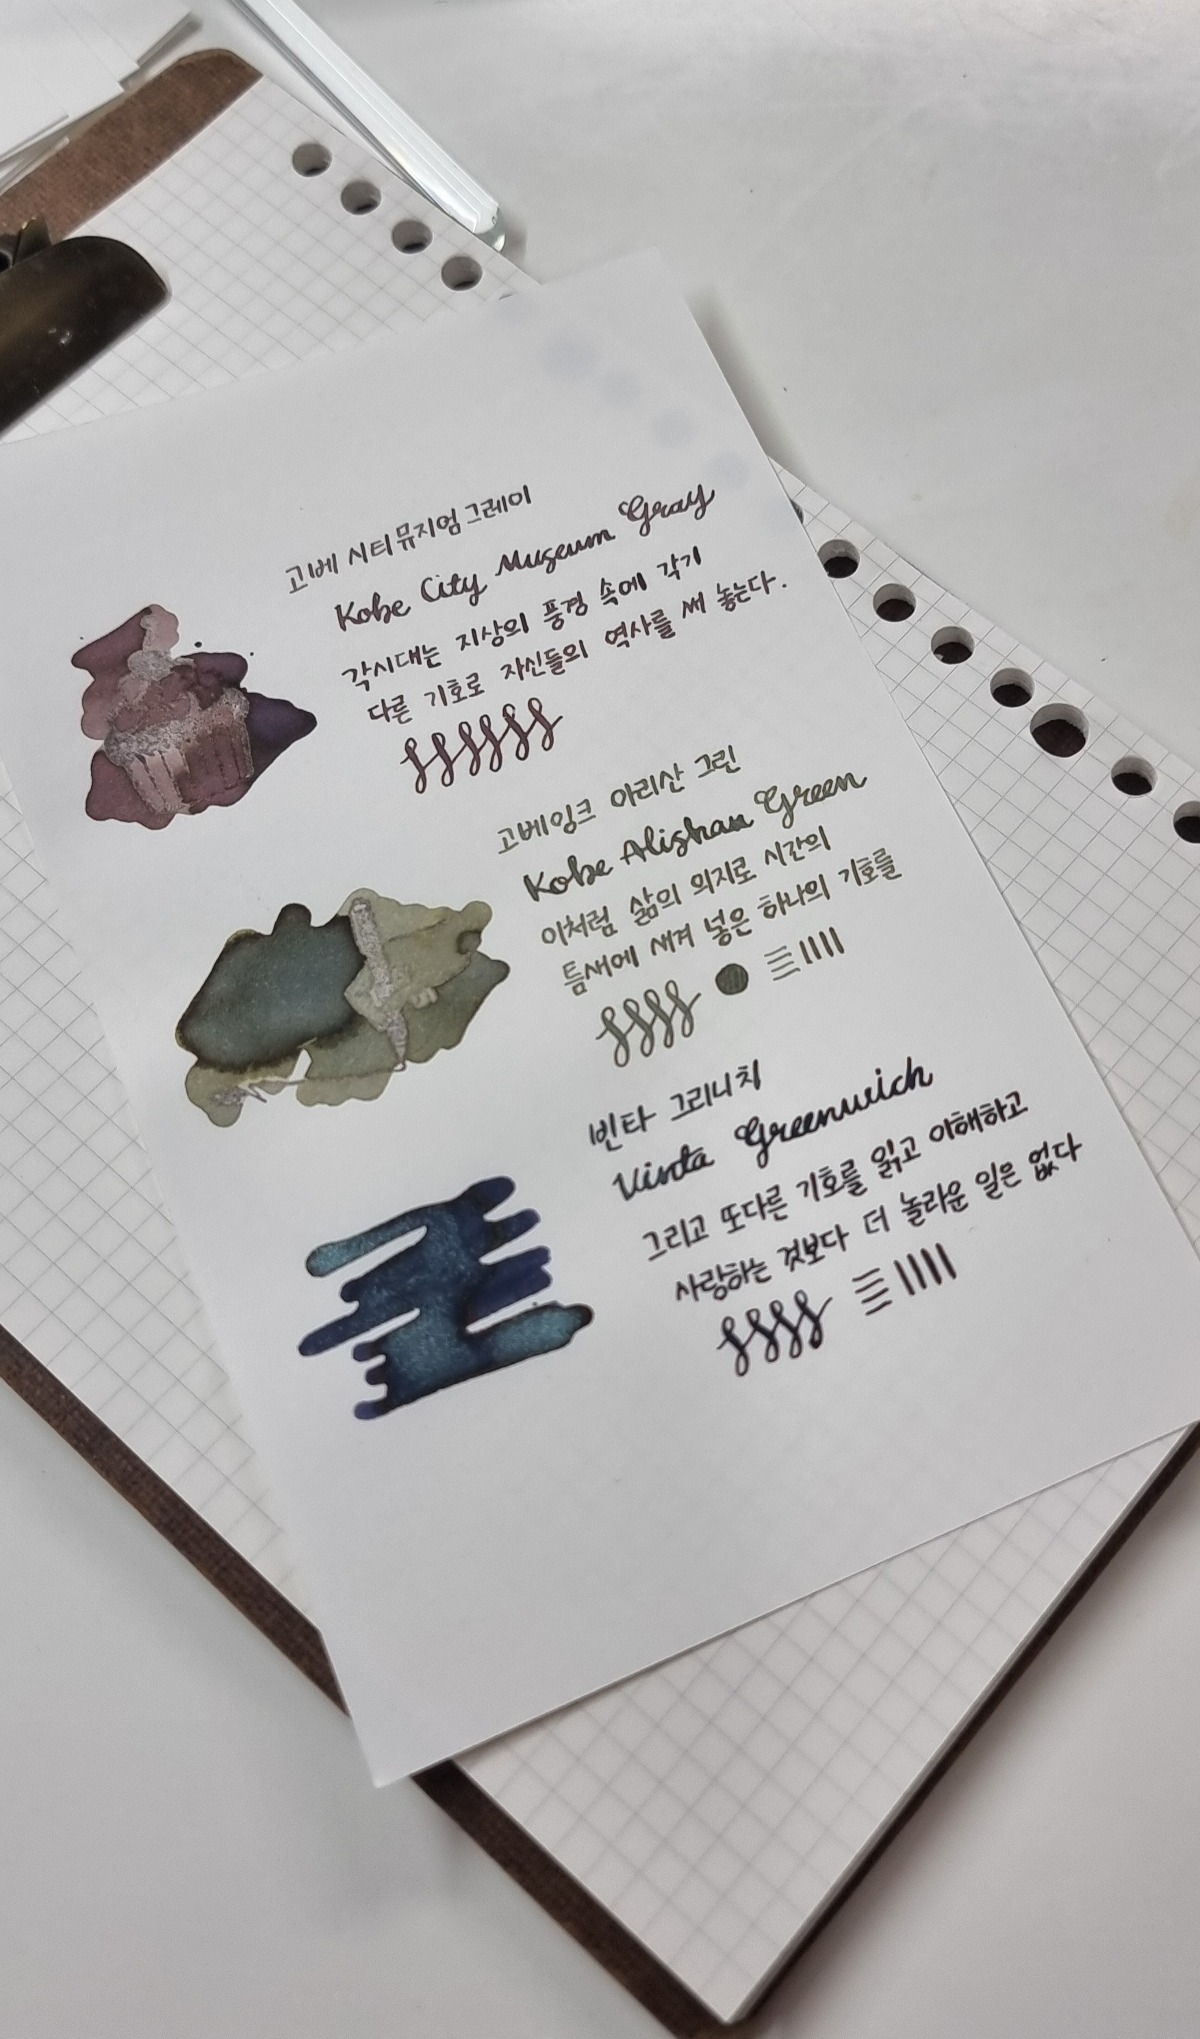 고베 시티 뮤지엄 그레이
Kobe City Museum Gray
각시대는 지상의 풍경 속에 각기
다른 기호로 자신들의 역사를 써 놓는다.
고베잉크 아리산 그린
Kobe Alishan Green
이처럼 삶의 의지로 시간의
틈새에 새겨 넣은 하나의 기호를
빈타 그리니치
Vinta Greenwich
그리고 또다른 기호를 읽고 이해하고
사랑하는 것보다 더 놀라운 일은 없다